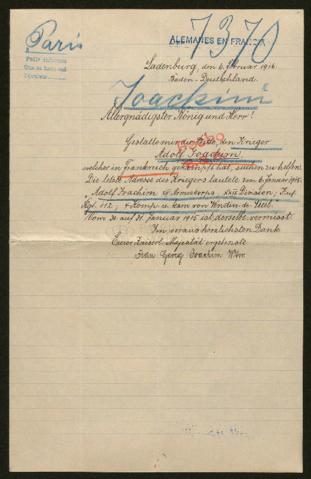 Paris
7370
ALEMANES EN FRANCIA
Ladenburg, den 6. Februar 1916.
Baden-Deutschland.
Joachim
Allergnädigster König und Herr!
Gestatten mir die Bitte, den Krieger
Adolf Joachim,
welcher in Frankreich gekämpft hat, suchen zu helfen.
Die letzte Adresse des Kriegers lautete vom 6. Januar 1915:
Adolf Joachim
Division; Inf.
Rgt 112, 4 Komp. u. kam von
Vom 30 auf 31. Januar 1915 ist derselbe vermisst.
Im voraus herzlichsten Dank
Eurer Kaiserl. Majestät ergebenste
Frau Georg Joachim Wtw.